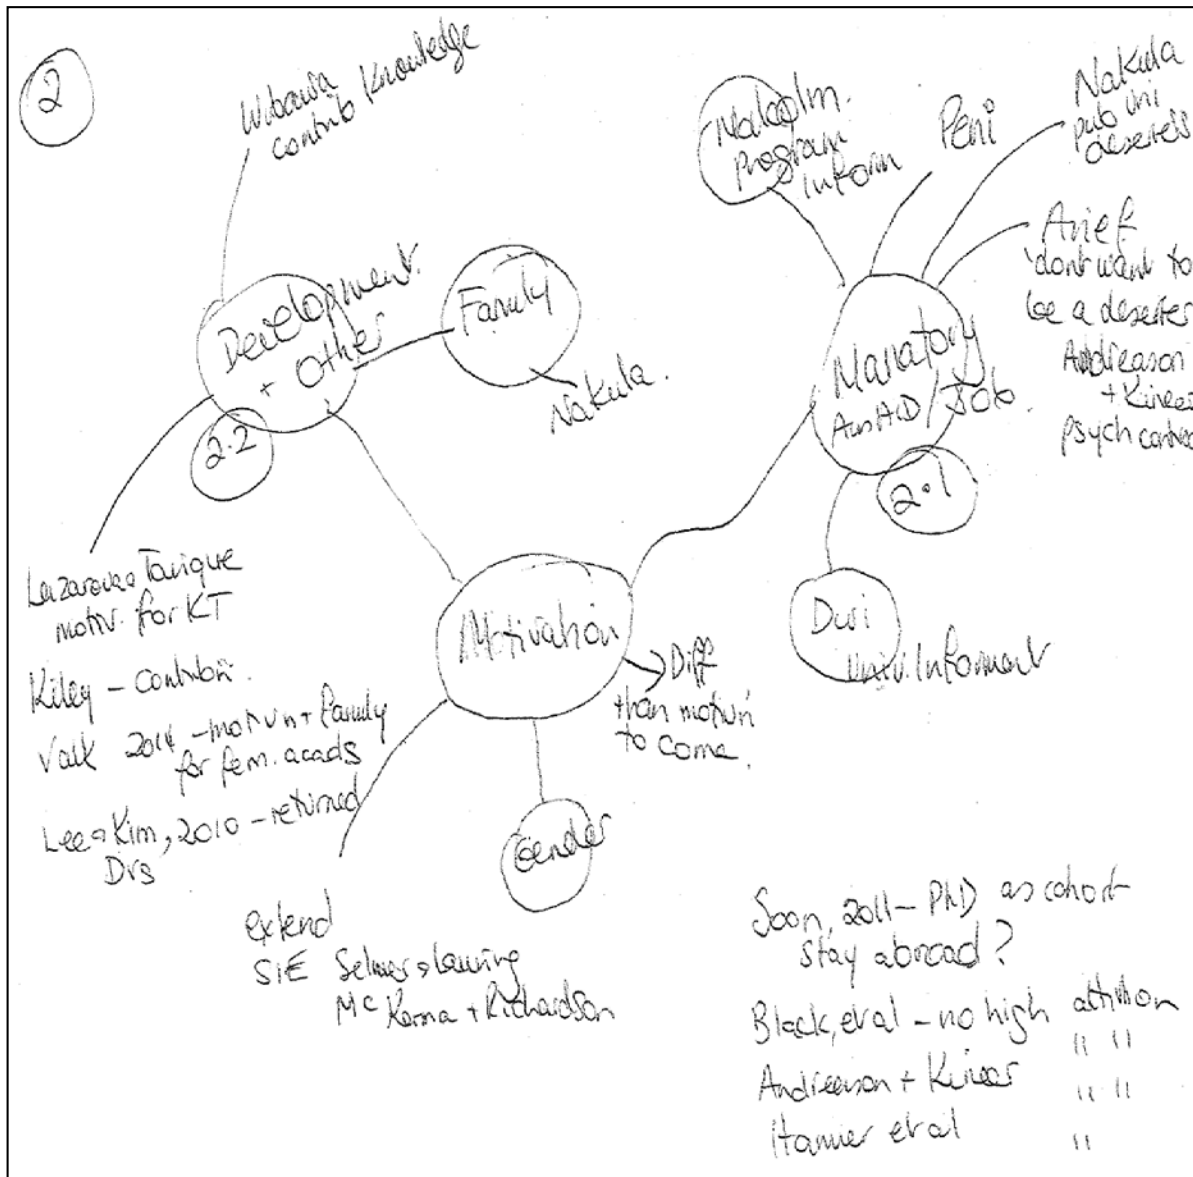 2
Wibawa
contrib Knowledge
Development
+ Other
2.2
Family
Nakula.
Malcolm.
program
inform
Peni
Nakula
pub uni
deserters
Arief
'dont want to
be a deserter
Andreason
+ Kinear
psych contract
Manatory
AusAID / Job.
2.1
Dwi
Univ. Informant
Motivation
Diff
than motivn
to come.
Gender
Lazarova & Tarique
motiv. for KT
Kiley - contribn.
Valk 2014 - motivn + family
for fem. acads
Lee & Kim, 2010 - returned
Drs
extend
SIE Selmer & Lauring
McKenna + Richardson
Soon, 2011 - PhD as cohort
stay abroad?
Black, et al - no high attrition
" "
Andreason + Kinear " "
et al "